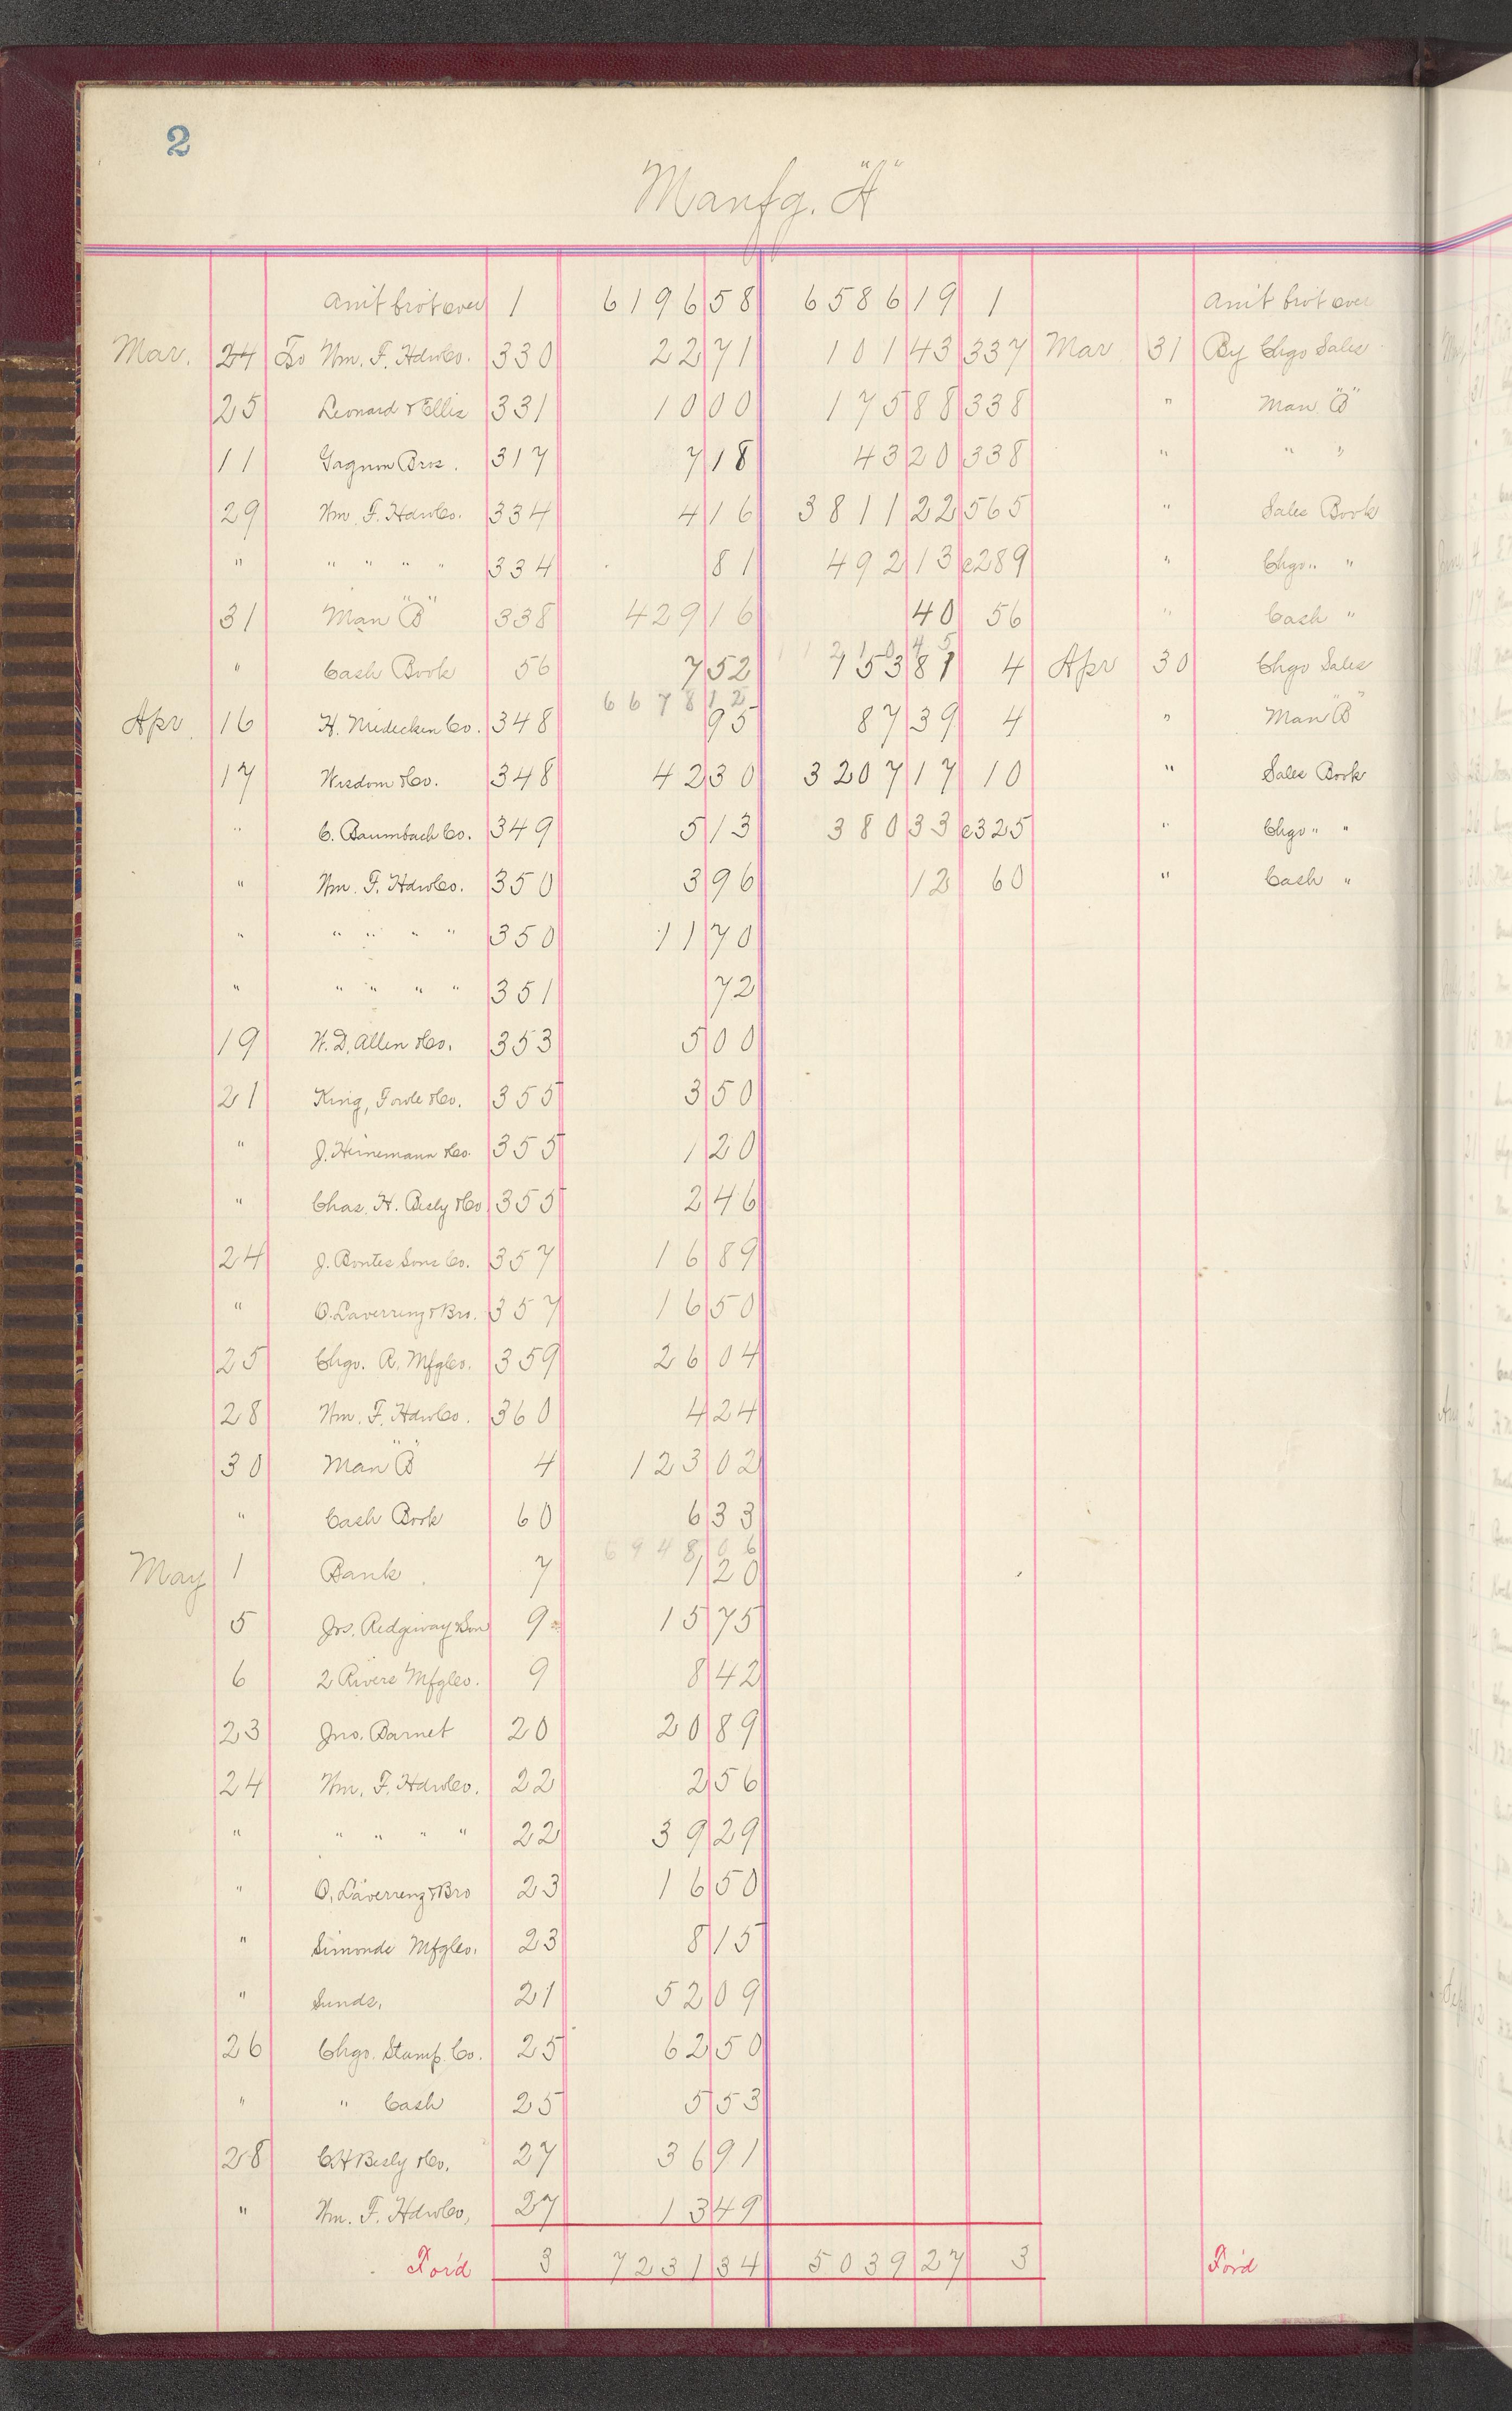 2
Manfg. "A"
Amt brot over 1 6196 58 6586 19 1 Amt brot over
Mar. 24 To Wm. F. Hdw Co. 330 22 71 101 43 337 Mar 31 By Chgo Sales
25 Leonard & Ellis 331 10 00 175 88 338 " Man "B"
11 Gagnon Bros. 317 7 18 43 20 338 " " "
29 Wm. F. Hdw Co. 334 4 16 3811 22 565 " Sales Book
" " " " " 334 81 492 13 c289 " Chgo " "
31 Man "B" 338 429 16 40 56 " Cash "
" Cash Book 56 7 52 753 81 4 Apr 30 Chgo Sales
6678 12
Apr. 16 H. Niedecken Co. 348 95 87 39 4 " Man "B"
17 Wisdom & Co. 348 42 30 3207 17 10 " Sales Book
" C. Baumbach Co. 349 5 13 380 33 c325 " Chgo " "
" Wm. F. Hdw Co. 350 3 96 12 60 " Cash "
" " " " " 350 11 70
" " " " " 351 72
19 W. D. Allen & Co. 353 5 00
21 King, Fowle & Co. 355 3 50
" J. Heinemann & Co. 355 1 20
" Chas. H. Besly & Co 355 2 46
24 J. Bontes Sons Co. 357 16 89
" O. Laverrenz & Bro. 357 16 50
25 Chgo. R. Mfg Co. 359 26 04
28 Wm. F. Hdw Co. 360 4 24
30 Man "B" 4 123 02
" Cash Book 60 6 33
6948 06
May 1 Bank 7 1 20
5 Jos. Redgeway & Son 9 15 75
6 2 Rivers Mfg Co. 9 8 42
23 Jno. Barnet 20 20 89
24 Wm. F. Hdw Co. 22 2 56
" " " " " 22 39 29
" O. Laverrenz & Bro 23 16 50
" Simonds Mfg Co. 23 8 15
" Sunds. 21 52 09
26 Chgo. Stamp. Co. 25 62 50
" " Cash 25 5 53
28 C H Besly & Co. 27 36 91
" Wm. F. Hdw Co, 27 13 49
For'd 3 7231 34 5039 27 3 For'd